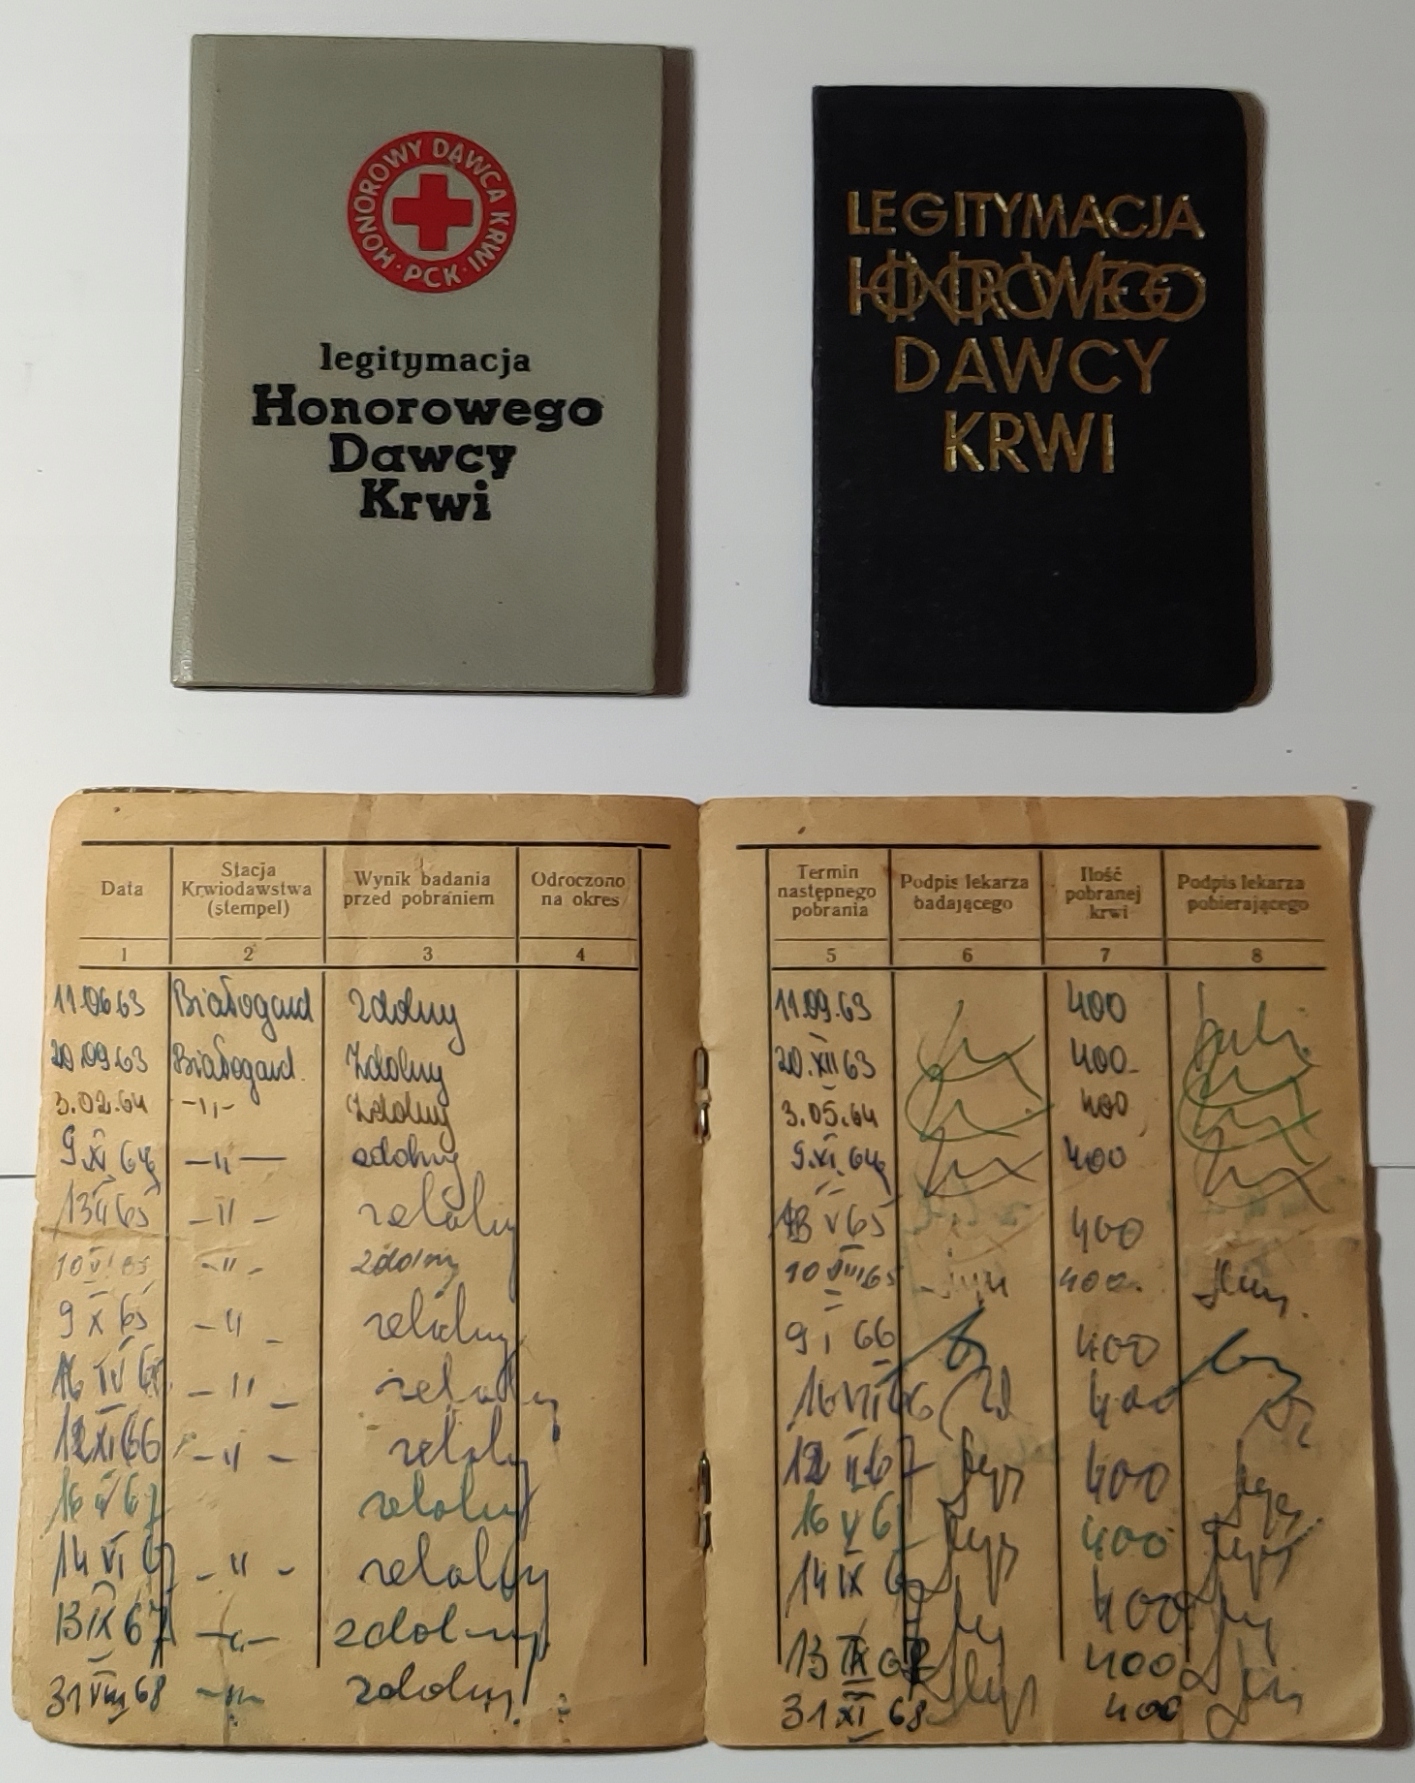 HONOROWY DAWCA KRWI · PCK ·
legitymacja
Honorowego
Dawcy
Krwi
LEGITYMACJA
HONOROWEGO
DAWCY
KRWI
Data
Stacja
Krwiodawstwa
(stempel)
Wynik badania
przed pobraniem
Odroczono
na okres
Termin
następnego
pobrania
Podpis lekarza
badającego
Ilość
pobranej
krwi
Podpis lekarza
pobierającego
1 2 3 4 5 6 7 8
11.06.63 Białogard zdolny 11.09.63 400
20.09.63 Białogard. Zdolny 20.XII 63 400-
3.02.64 -"- Zdolny 3.05.64 400
9.XI 64 -"- zdolny 9.XI.64 400
13 II 65 -"- zdolny 13 V 65 400
10 VI 65 -"- zdolny 10 VIII 65 400.
9 X 65 -"- zdolny 9 I 66 400
16 IV -"- zdolny 16 VII 66 400
12 XI 66 -"- zdolny 12 II 67 400
16 67 zdolny 16 V 400
14 VI 67 -"- zdolny 14 IX 400
13 IX 67 -"- zdolny 13 400
31 VIII 68 -"- zdolny 31 XI 68 400